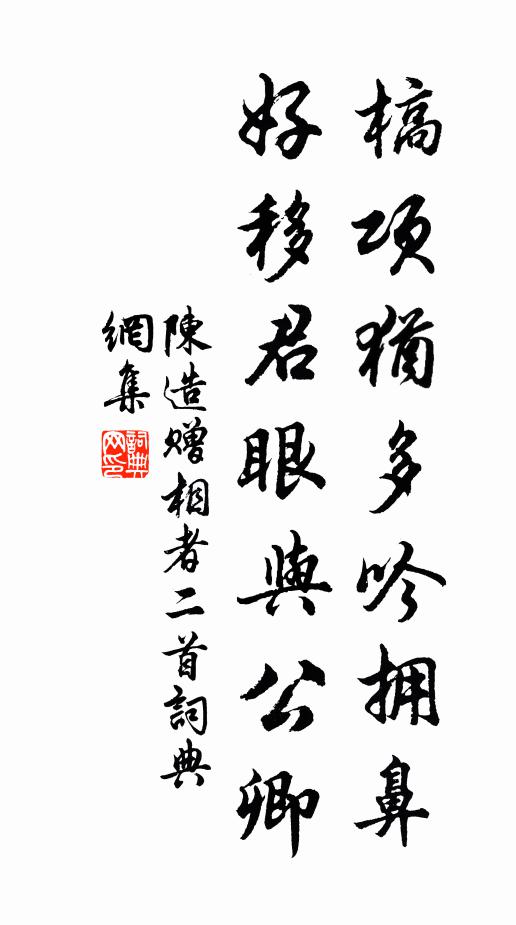 槁項猶多吟拥鼻
好移君眼與公卿
陳造赠相者二首詞典
網集
詞典网印